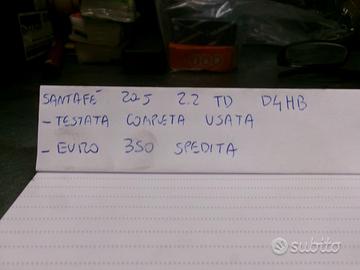 SANTAFÉ 22J 2.2 TD D4HB
- TESTATA COMPLETA USATA
- EURO 350 SPEDITA
subito